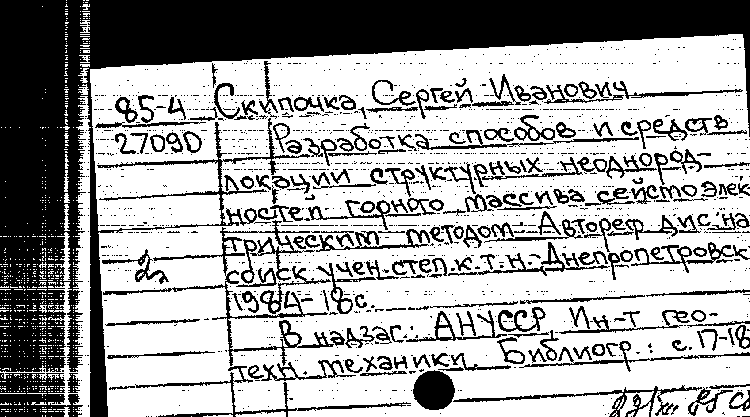 85-4 Скипочка, Сергей Иванович.
2709D Разработка способов и средств
локации структурных неоднород-
ностей горного массива сейсмоэлек
трическим методом: Автореф. дис. на
соиск. учен. степ. к.т.н. - Днепропетровск
1984-18с.
В надзаг.: АН УССР, Ин-т гео-
техн. механики. Библиогр.: с. 17-18